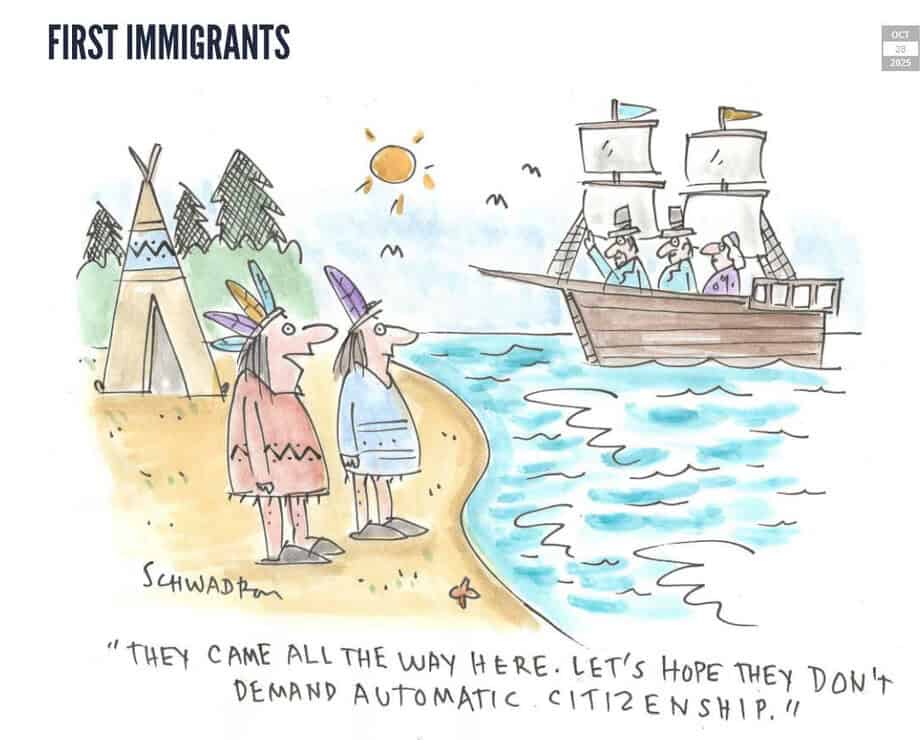 FIRST IMMIGRANTS
OCT
28
2025
SCHWADRON
"THEY CAME ALL THE WAY HERE. LET'S HOPE THEY DON'T
DEMAND AUTOMATIC CITIZENSHIP."